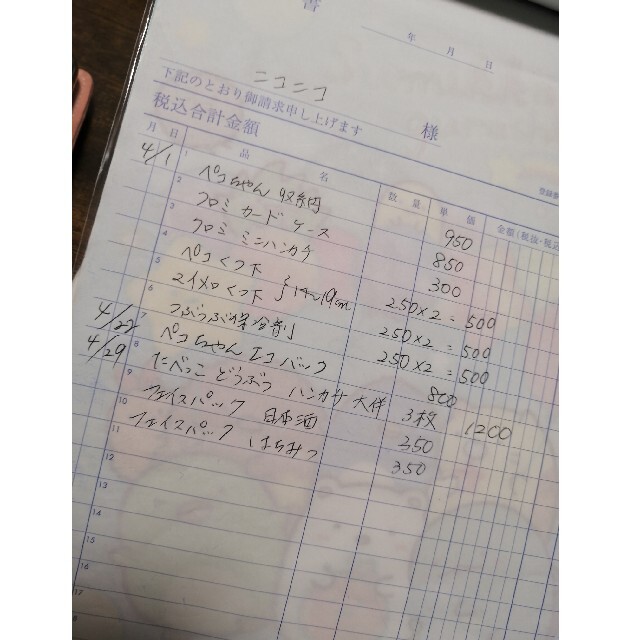 書
年 月 日
ニコニコ 様
下記のとおり御請求申し上げます
税込合計金額
登録番
月 日 品 名 数 量 単 価 金額(税抜・税込
4/1 1 ペコちゃん 収納 950
2 クロミ カード ケース 850
3 クロミ ミニハンカチ 300
4 ペコくつ下 250×2=500
5 マイメロくつ下 19cm 250×2=500
6 つぶつぶ保冷剤 250×2=500
4/22 7 ペコちゃん エコバック 800
4/29 8 たべっこ どうぶつ ハンカチ 大伴 3枚 1200
9 フェイスパック 日本酒 350
10 フェイスパック はちみつ 350
11
12
13
14
15
16
17